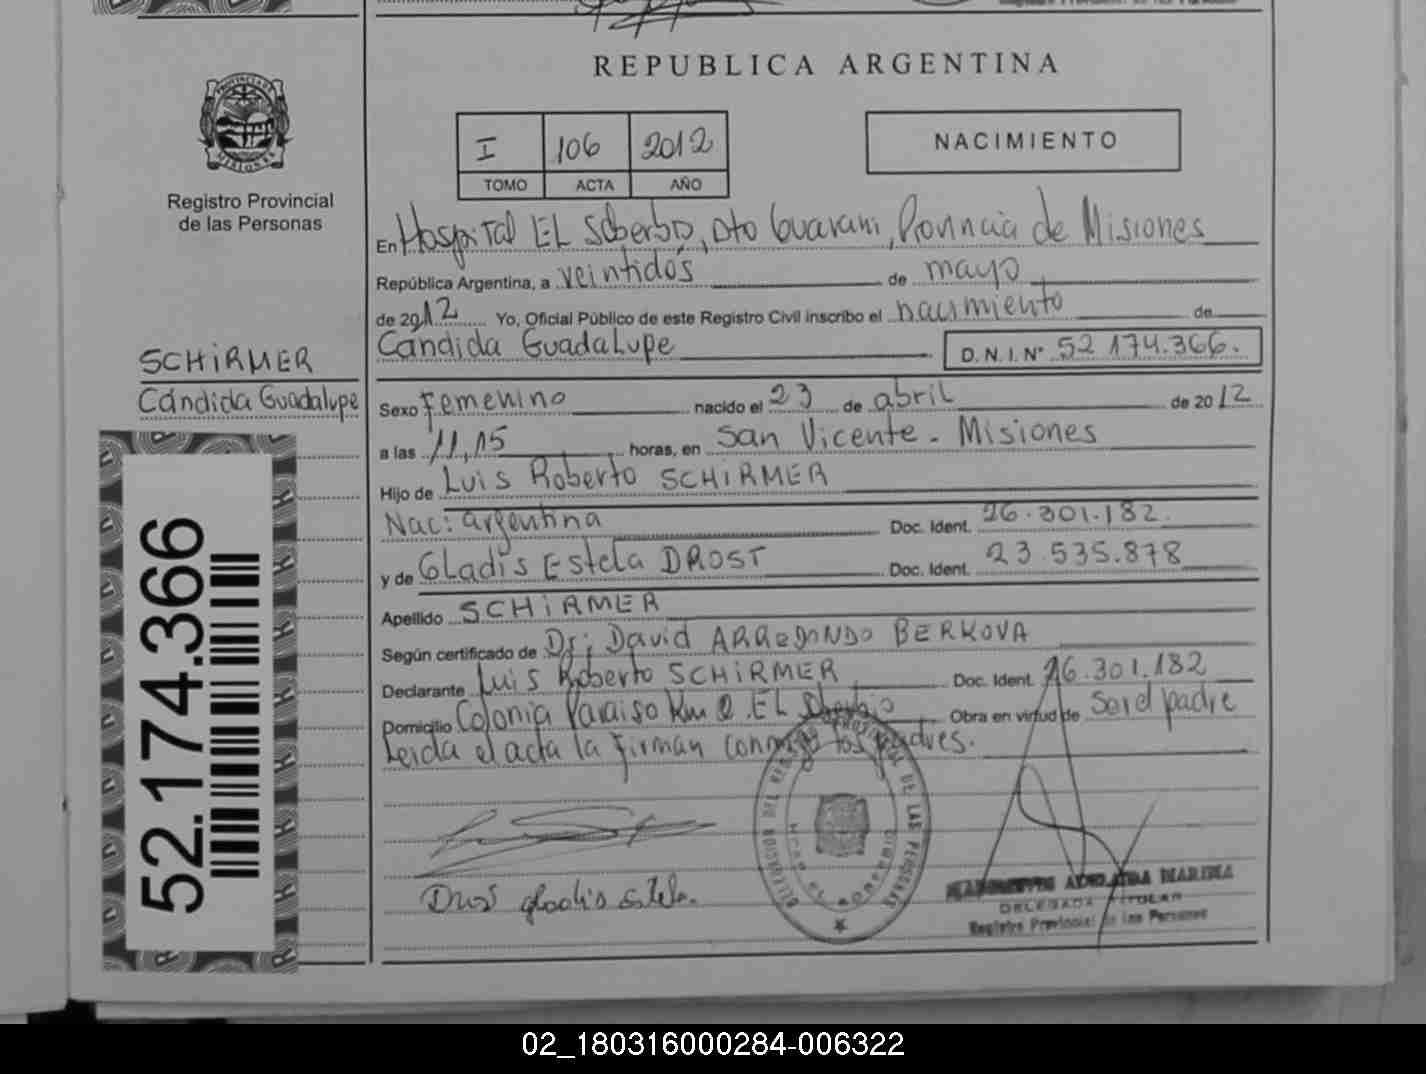 REPUBLICA ARGENTINA
PROVINCIA DE
MISIONES
Registro Provincial
de las Personas
I 106 2012
TOMO ACTA AÑO
NACIMIENTO
En Hospital EL Soberbio, Dto Guarani, Provincia de Misiones
República Argentina, a veintidós de mayo
de 2012 Yo, Oficial Público de este Registro Civil inscribo el nacimiento de
Cándida Guadalupe D.N.I.Nº 52 174.366.
SCHiRMER
Cándida Guadalupe
Sexo Femenino nacido el 23 de abril de 2012
a las 11,15 horas, en San Vicente - Misiones
Hijo de Luis Roberto SCHiRMER
Nac: argentina Doc. Ident. 26.301.182.
y de Gladis Estela DROST Doc. Ident. 23.535.878
Apellido SCHiRMER
Según certificado de Dr: David ARREDONDO BERKOVA
Declarante Luis Roberto SCHiRMER Doc. Ident. 26.301.182
Domicilio Colonia Paraiso Km EL Soberbio Obra en virtud de Ser el padre
Leida el acta la firman conmigo los padres.
52.174.366
DE LAS PERSONAS
DELEGADA TITULAR
Registro Provincial de las Personas
02_180316000284-006322